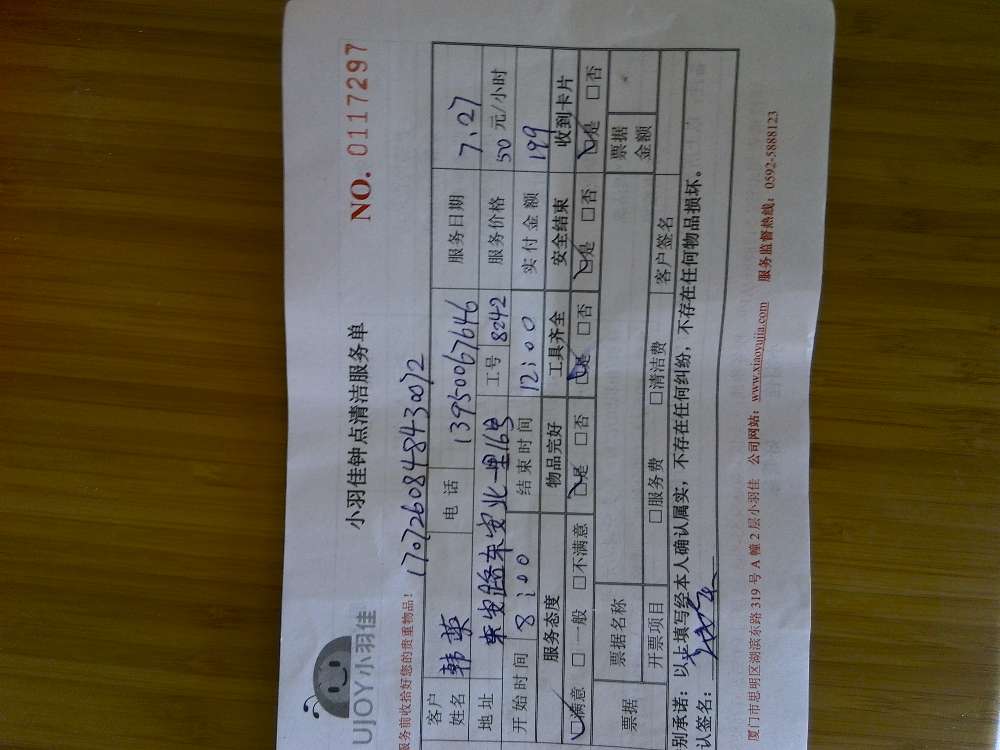 UJOY小羽佳
小羽佳钟点清洁服务单
NO. 0117297
服务前收拾好您的贵重物品!
1707260848430072
客户姓名 韩英 电话 13950067646 服务日期 7.27
地址 东安路东安北一里16号 工号 8242 服务价格 50 元/小时
开始时间 8:00 结束时间 12:00 实付金额 199
服务态度 物品完好 工具齐全 安全结束 收到卡片
☑满意 □一般 □不满意 ☑是 □否 ☑是 □否 ☑是 □否 ☑是 □否
票据 票据名称 票据金额
开票项目 □服务费 □清洁费 客户签名
别承诺:以上填写经本人确认属实,不存在任何纠纷,不存在任何物品损坏。
认签名:
厦门市思明区湖滨东路319号A幢2层小羽佳 公司网站:www.xiaoyujia.com 服务监督热线:0592-5888123